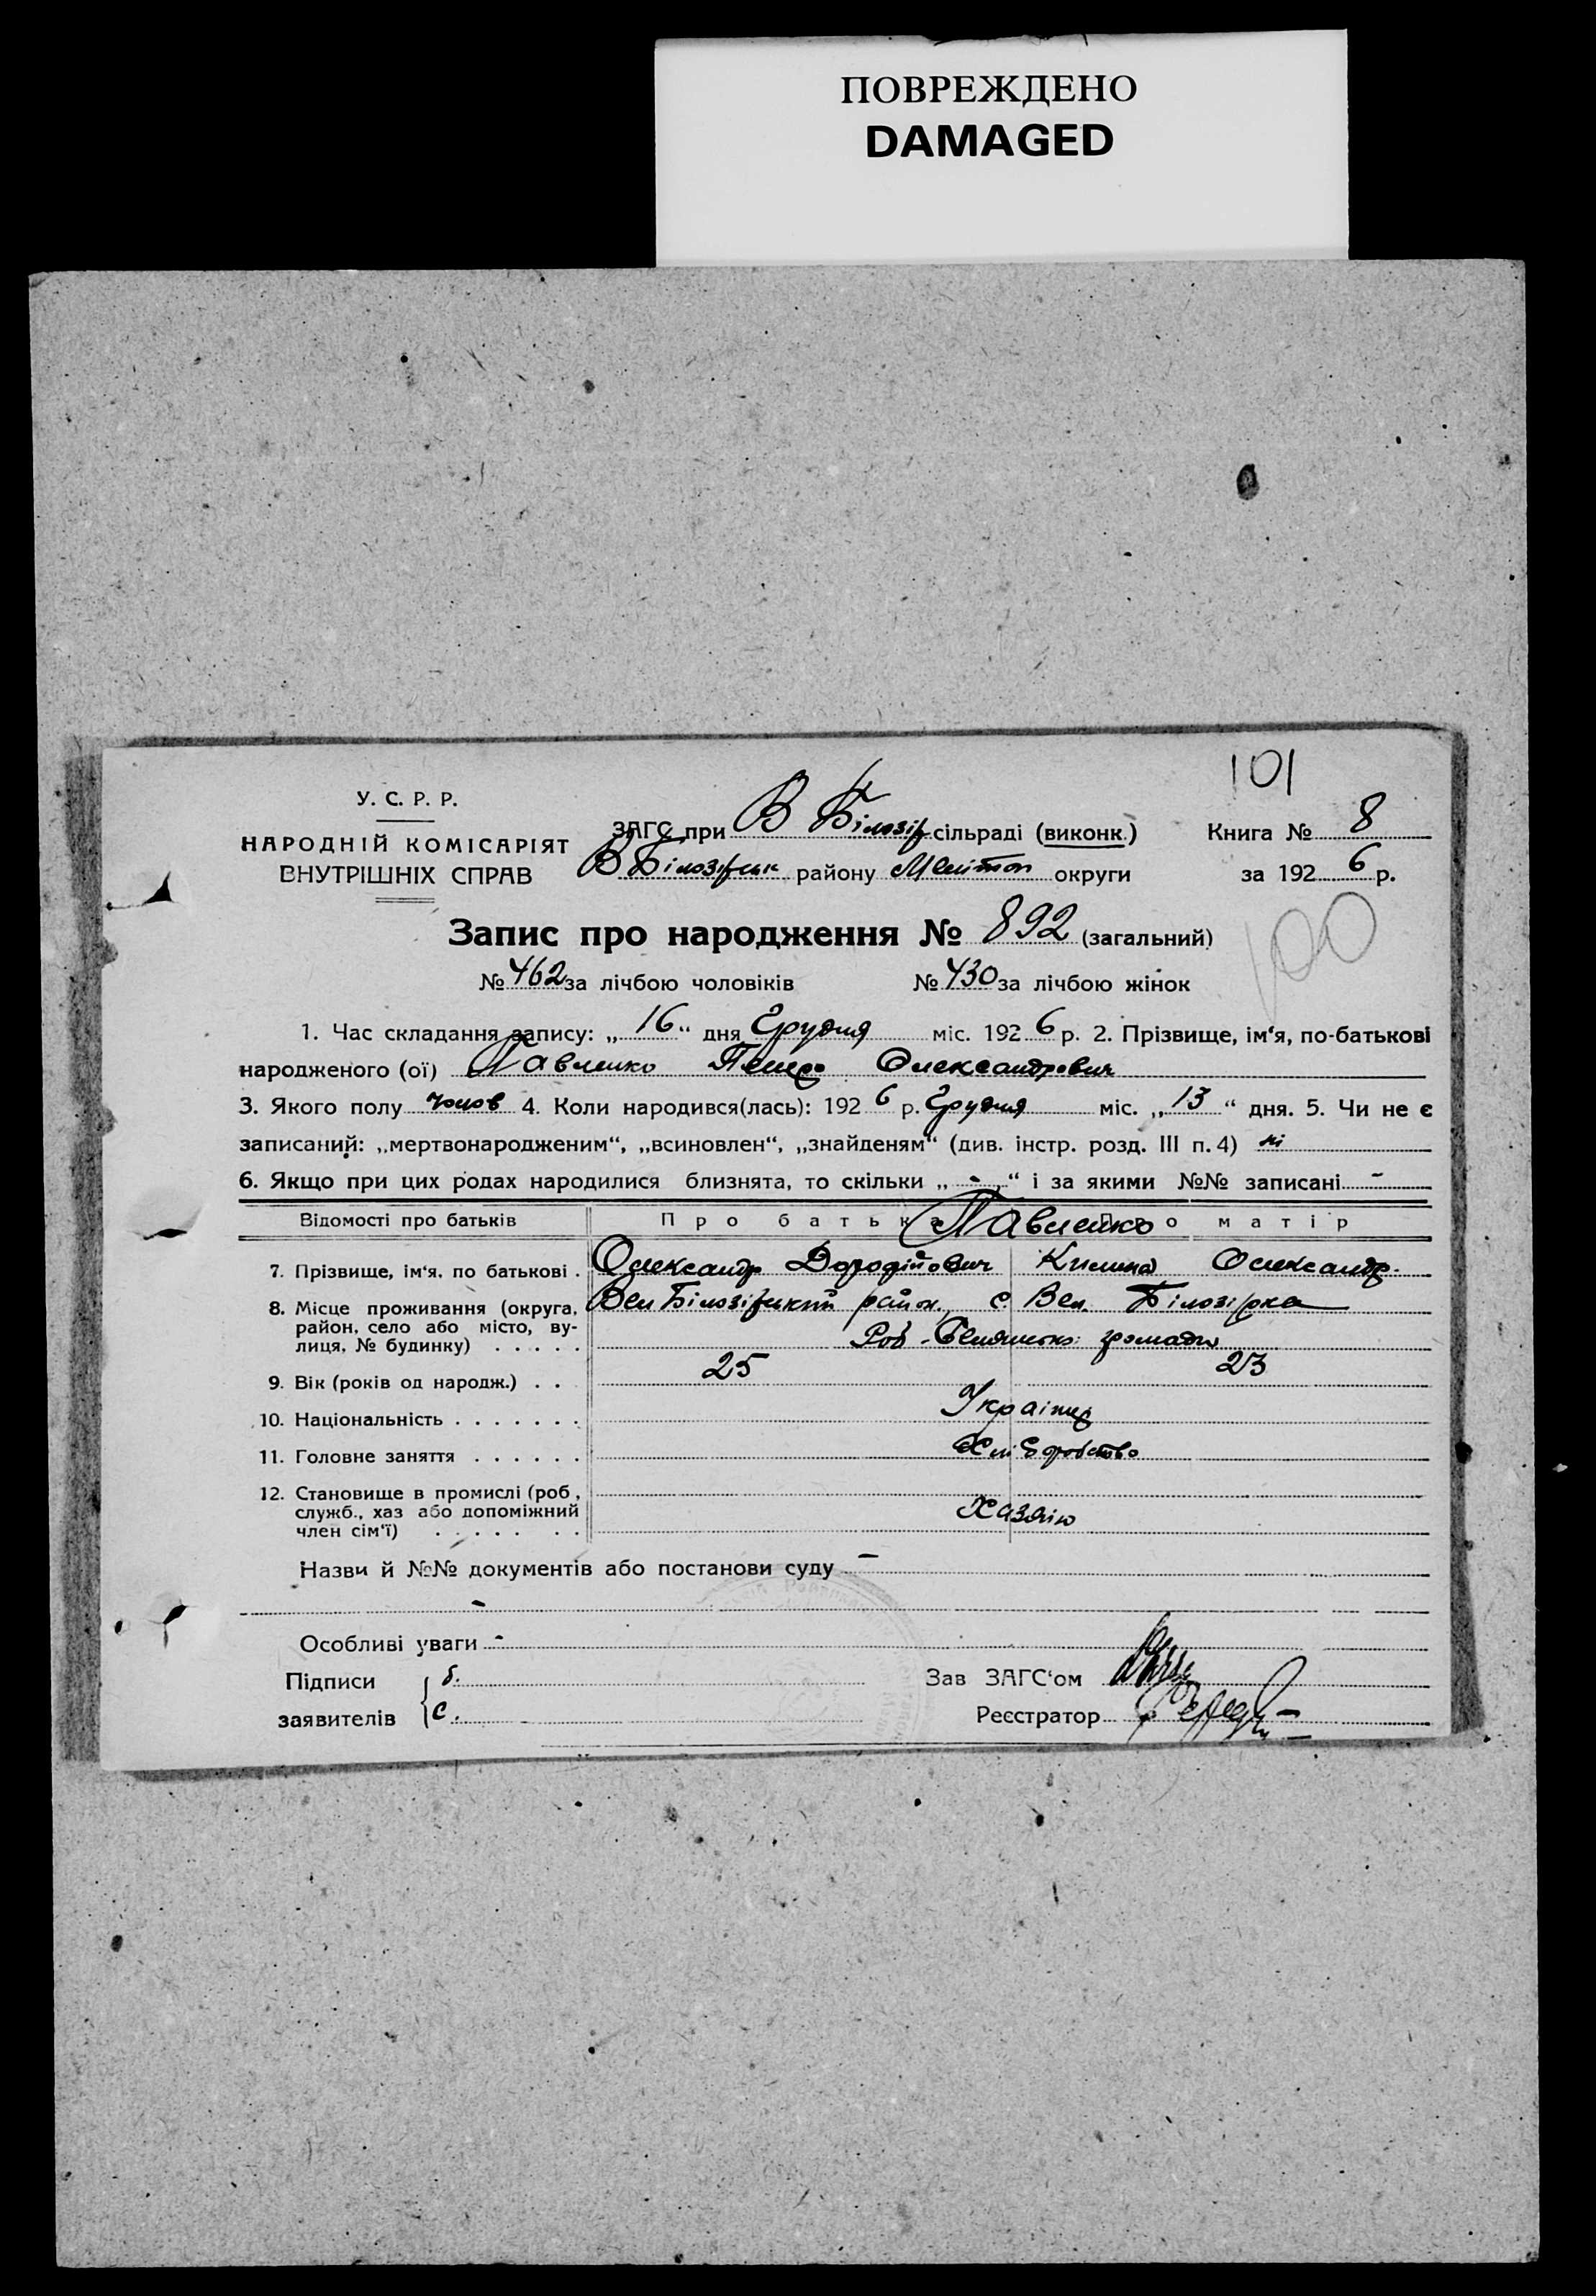 ПОВРЕЖДЕНО
DAMAGED
101
У. С. Р. Р.
НАРОДНІЙ КОМІСАРІЯТ
ВНУТРІШНІХ СПРАВ
ЗАГС при В Білозір. сільраді (виконк.)
В Білозірськ району Мелітоп округи
Книга № 8
за 1926 р.
Запис про народження № 892 (загальний)
100
№ 462 за лічбою чоловіків № 430 за лічбою жінок
1. Час складання запису: „16“ дня Грудня міс. 1926 р. 2. Прізвище, ім‘я, по-батькові
народженого (ої) Павленко Петро Олександрович
3. Якого полу чолов 4. Коли народився(лась): 1926 р. Грудня міс. „13“ дня. 5. Чи не є
записаний: „мертвонародженим“, „всиновлен“, „знайденям“ (див. інстр. розд. III п. 4) ні
6. Якщо при цих родах народилися близнята, то скільки „-“ і за якими №№ записані -
Відомості про батьків Про батька Про матір
Павленко
7. Прізвище, ім‘я, по батькові . Олександр Дорофійович Килина Олександр.
8. Місце проживання (округа, район, село або місто, вулиця, № будинку) . . . . . Вел Білозірський район, с. Вел. Білозірка
громади
9. Вік (років од народж.) . . 25 23
10. Національність . . . . . . . Українці
11. Головне заняття . . . . . . Хліборобство
12. Становище в промислі (роб., служб., хаз або допоміжний член сім‘ї) . . . . . . . Хазяїн
Назви й №№ документів або постанови суду -
-
Особливі уваги -
Підписи заявителів { б.
с.
Зав ЗАГС‘ом
Реєстратор